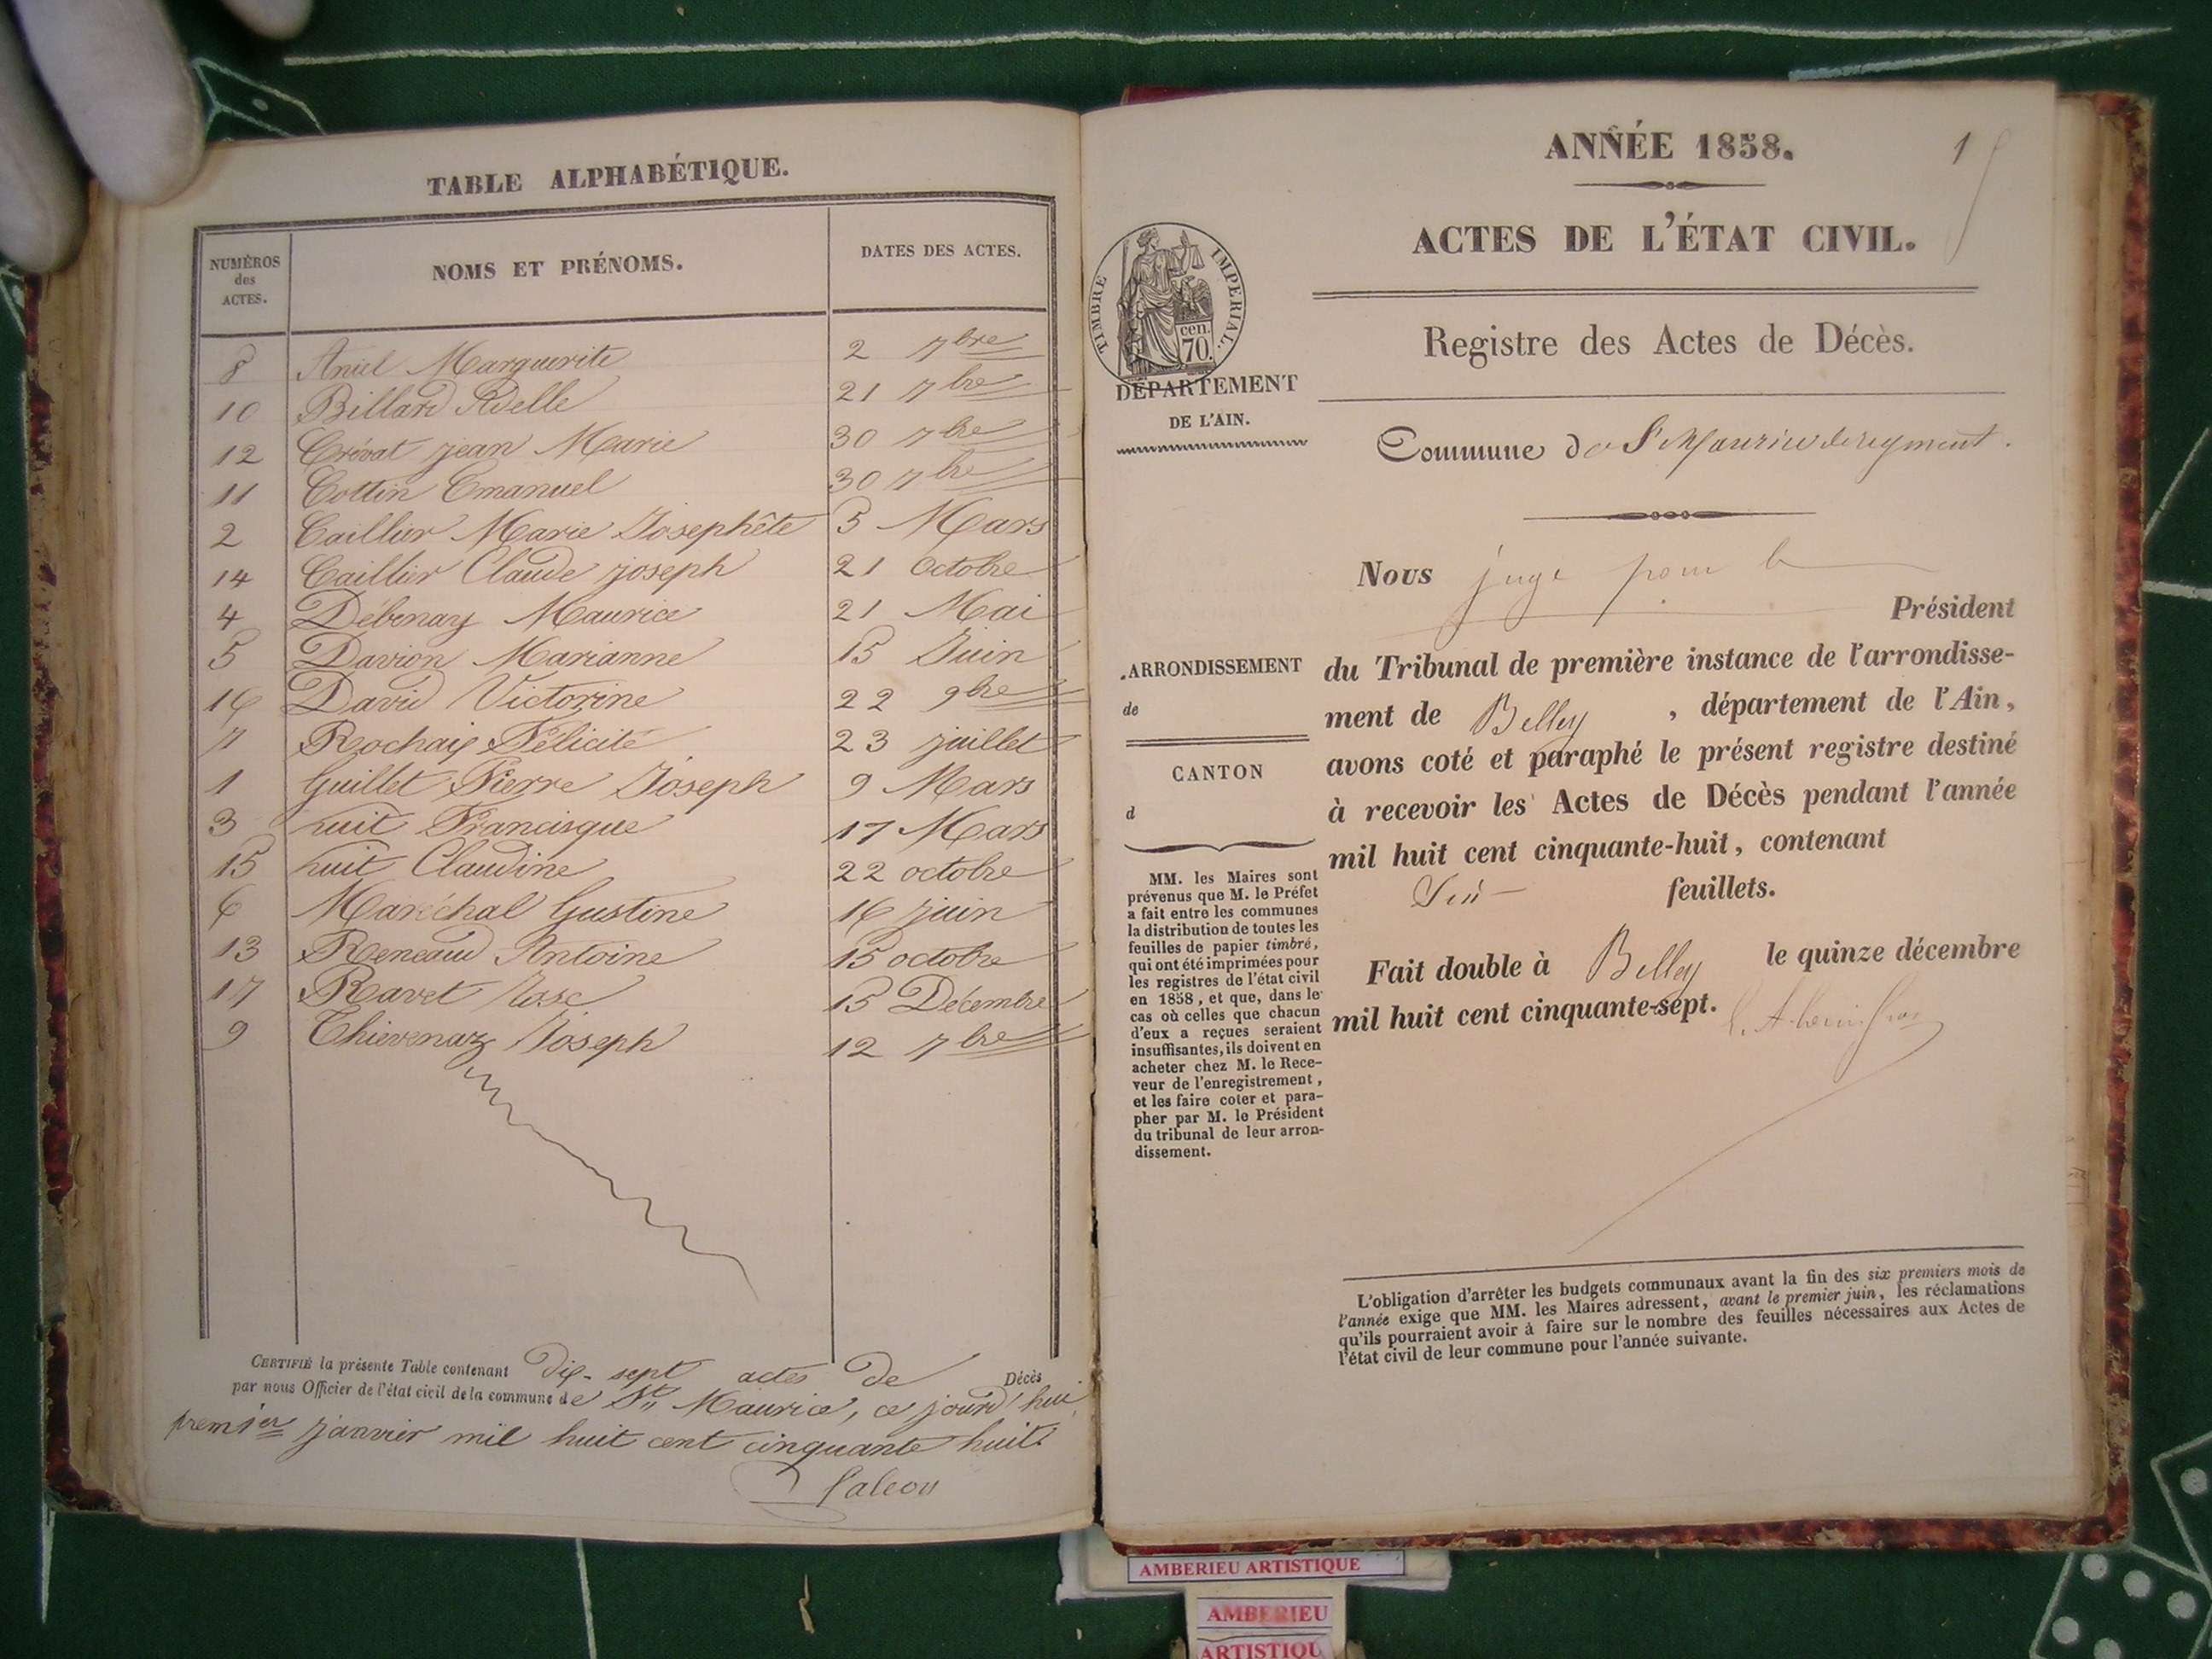 TABLE ALPHABÉTIQUE.
NUMÉROS des ACTES.
NOMS ET PRÉNOMS.
DATES DES ACTES.
8 Marguerite 2 7bre
10 Billard Adelle 21 7bre
12 Crévat jean Marie 30 7bre
11 Cottin Emanuel 30 7bre
2 Caillier Marie Josephête 5 Mars
14 Caillier Claude joseph 21 Octobre
4 Débenay Maurice 21 Mai
5 Davion Marianne 15 Juin
16 David Victorine 22 9bre
7 Rochaix Félicité 23 juillet
1 Guillet Pierre Joseph 9 Mars
3 huit Francisque 17 Mars
15 huit Claudine 22 octobre
6 Maréchal Gustine 16 juin
13 Reneaud Antoine 15 octobre
17 Ravet Rose 15 Décembre
9 Thievenaz Joseph 12 7bre
CERTIFIÉ la présente Table contenant dix-sept actes de Décès
par nous Officier de l'état civil de la commune de St Maurice, ce jourd'hui
premier janvier mil huit cent cinquante huit.
Falcon
ANNÉE 1858.
1
ACTES DE L'ÉTAT CIVIL.
TIMBRE IMPERIAL.
cen.
70.
Registre des Actes de Décès.
DÉPARTEMENT
DE L'AIN.
Commune de St Maurice de
Nous juge pour le
Président
ARRONDISSEMENT
de
du Tribunal de première instance de l'arrondisse-
ment de Belley, département de l'Ain,
avons coté et paraphé le présent registre destiné
CANTON
d
à recevoir les Actes de Décès pendant l'année
mil huit cent cinquante-huit, contenant
feuillets.
MM. les Maires sont
prévenus que M. le Préfet
a fait entre les communes
la distribution de toutes les
feuilles de papier timbré,
qui ont été imprimées pour
les registres de l'état civil
en 1858, et que, dans le
cas où celles que chacun
d'eux a reçues seraient
insuffisantes, ils doivent en
acheter chez M. le Rece-
veur de l'enregistrement,
et les faire coter et para-
pher par M. le Président
du tribunal de leur arron-
dissement.
Fait double à Belley le quinze décembre
mil huit cent cinquante-sept.
L'obligation d'arrêter les budgets communaux avant la fin des six premiers mois de
l'année exige que MM. les Maires adressent, avant le premier juin, les réclamations
qu'ils pourraient avoir à faire sur le nombre des feuilles nécessaires aux Actes de
l'état civil de leur commune pour l'année suivante.
AMBERIEU ARTISTIQUE
AMBERIEU
ARTISTIQU